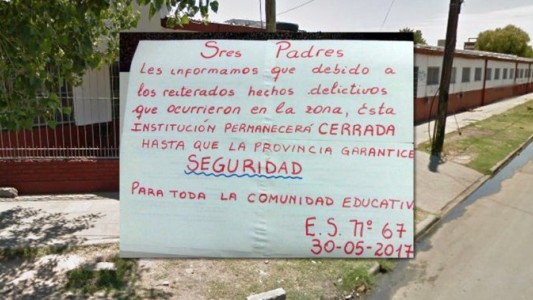 Sres Padres
Les informamos que debido a
los reiterados hechos delictivos
que ocurrieron en la zona, Esta
INSTITUCIÓN PERMANECERÁ CERRADA
HASTA QUE LA PROVINCIA GARANTICE
SEGURIDAD
PARA TODA LA COMUNIDAD EDUCATIV
E.S. Nº 67
30-05-2017